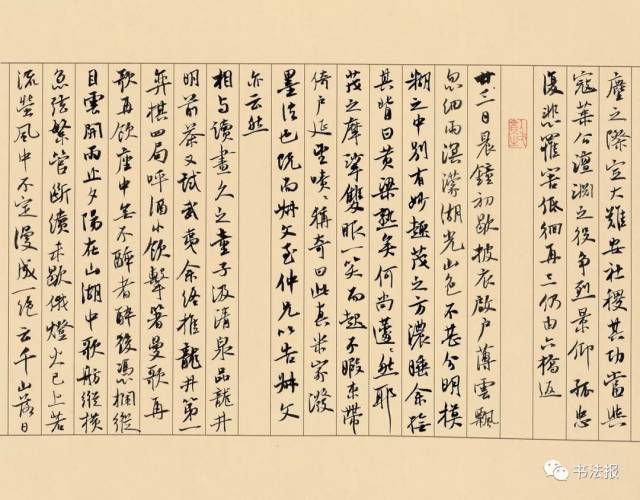 之際定大難安社稷其功當與
寇萊公澶淵之役爭烈景仰孤忠
復悲罹害低徊再三仍由六橋返
廿三日晨鐘初歇披衣啟戶薄雲飄
忽細雨溟濛湖光山色不甚分明模
糊之中別有妙趣茂之方濃睡余
其背曰黃粱熟矣何尚蘧蘧然耶
茂之摩挲雙眼一笑而起不暇束帶
倚戶延望嘖嘖稱奇曰此真米家潑
墨法也既而叔文仲兄以告叔文
亦云然
相與讀畫久之童子汲清泉品龍井
明前茶又試武夷余終推龍井第一
弈棋四局呼酒小飲擊箸曼歌再
歌再飲座中無不醉者醉後憑欄縱
目雲開雨止夕陽在山湖中歌舫縱橫
急弦繁管斷續未歇俄燈火已上若
流螢風中不定漫成一絕云千山落日
书法报